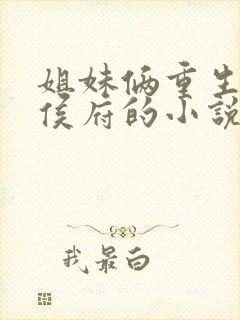 姐妹俩重生
侯府的小說
我最白